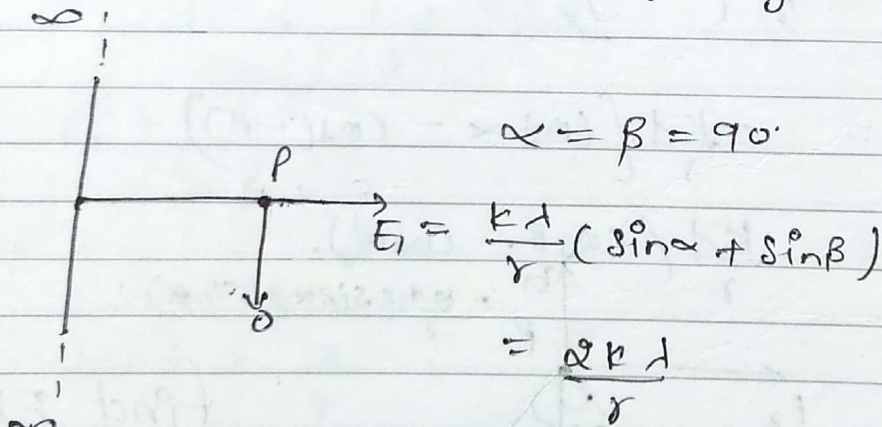 ∞
α = β = 90°
P
E₁ = kλ/r (sinα + sinβ)
0
= 2kλ/r